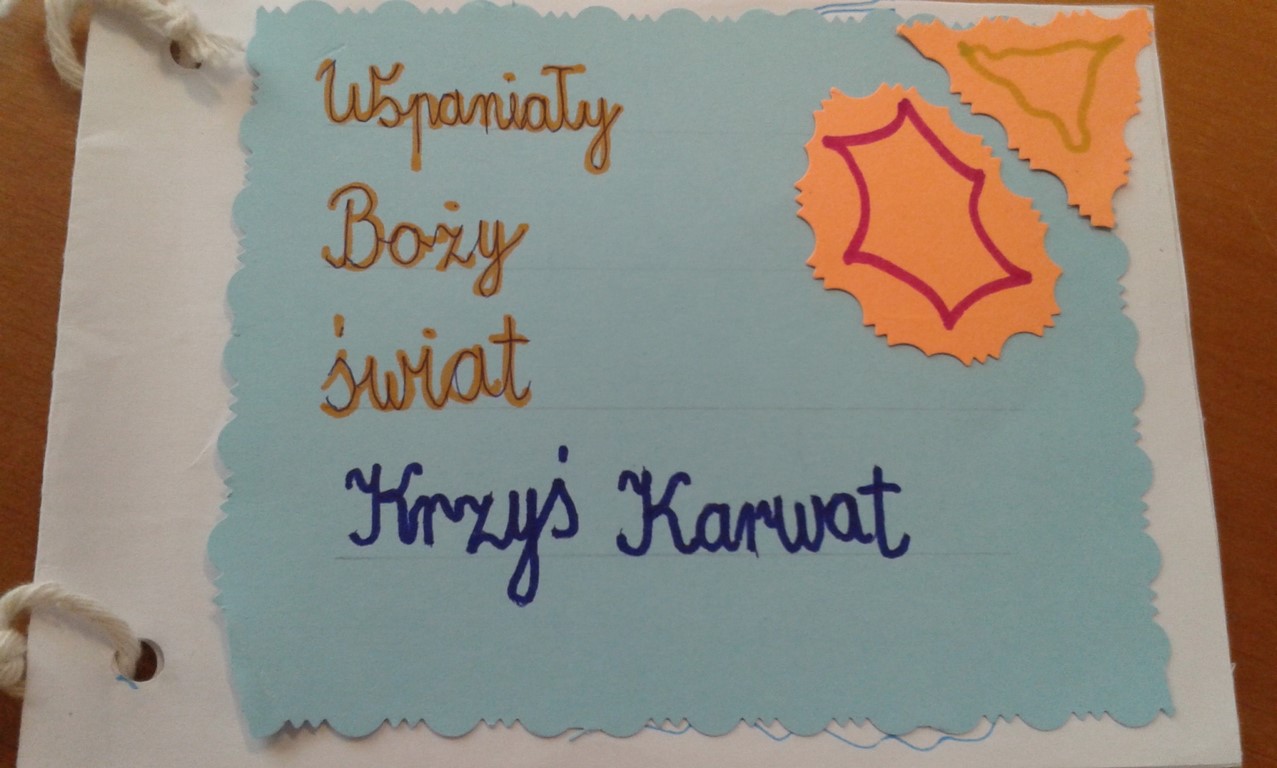 Wspaniały
Boży
świat
Krzyś Karwat